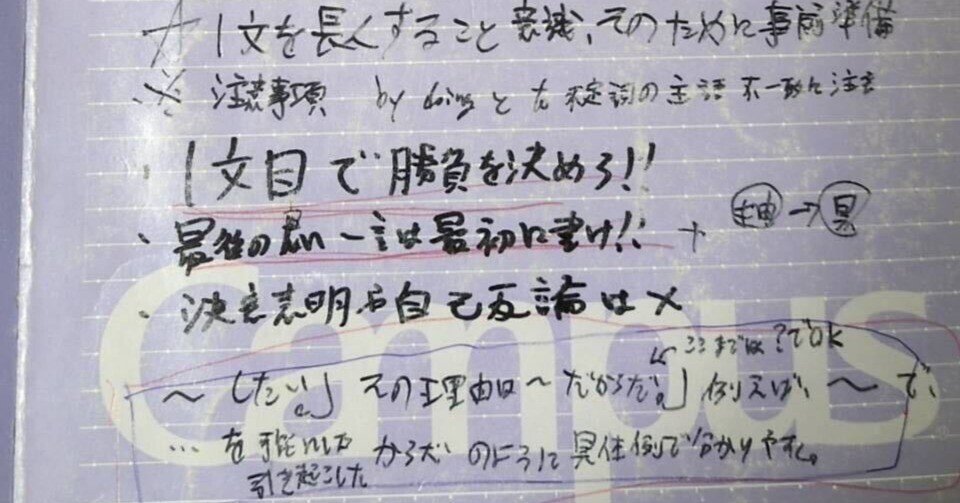 ☆ 1文を長くすること意識、そのために事前準備
※ 注意事項 by doing と to 不定詞の主語不一致に注意
・1文目で勝負を決めろ!!
・最後の思い一言は最初に書け!! + 抽→具
・決意表明や自己反論は×
ここまでは?でOK
〜したい。」その理由は〜だからだ。」例えば、〜で、
…を可能にした からだ のように具体例で分かりやすく。
引き起こした
Campus